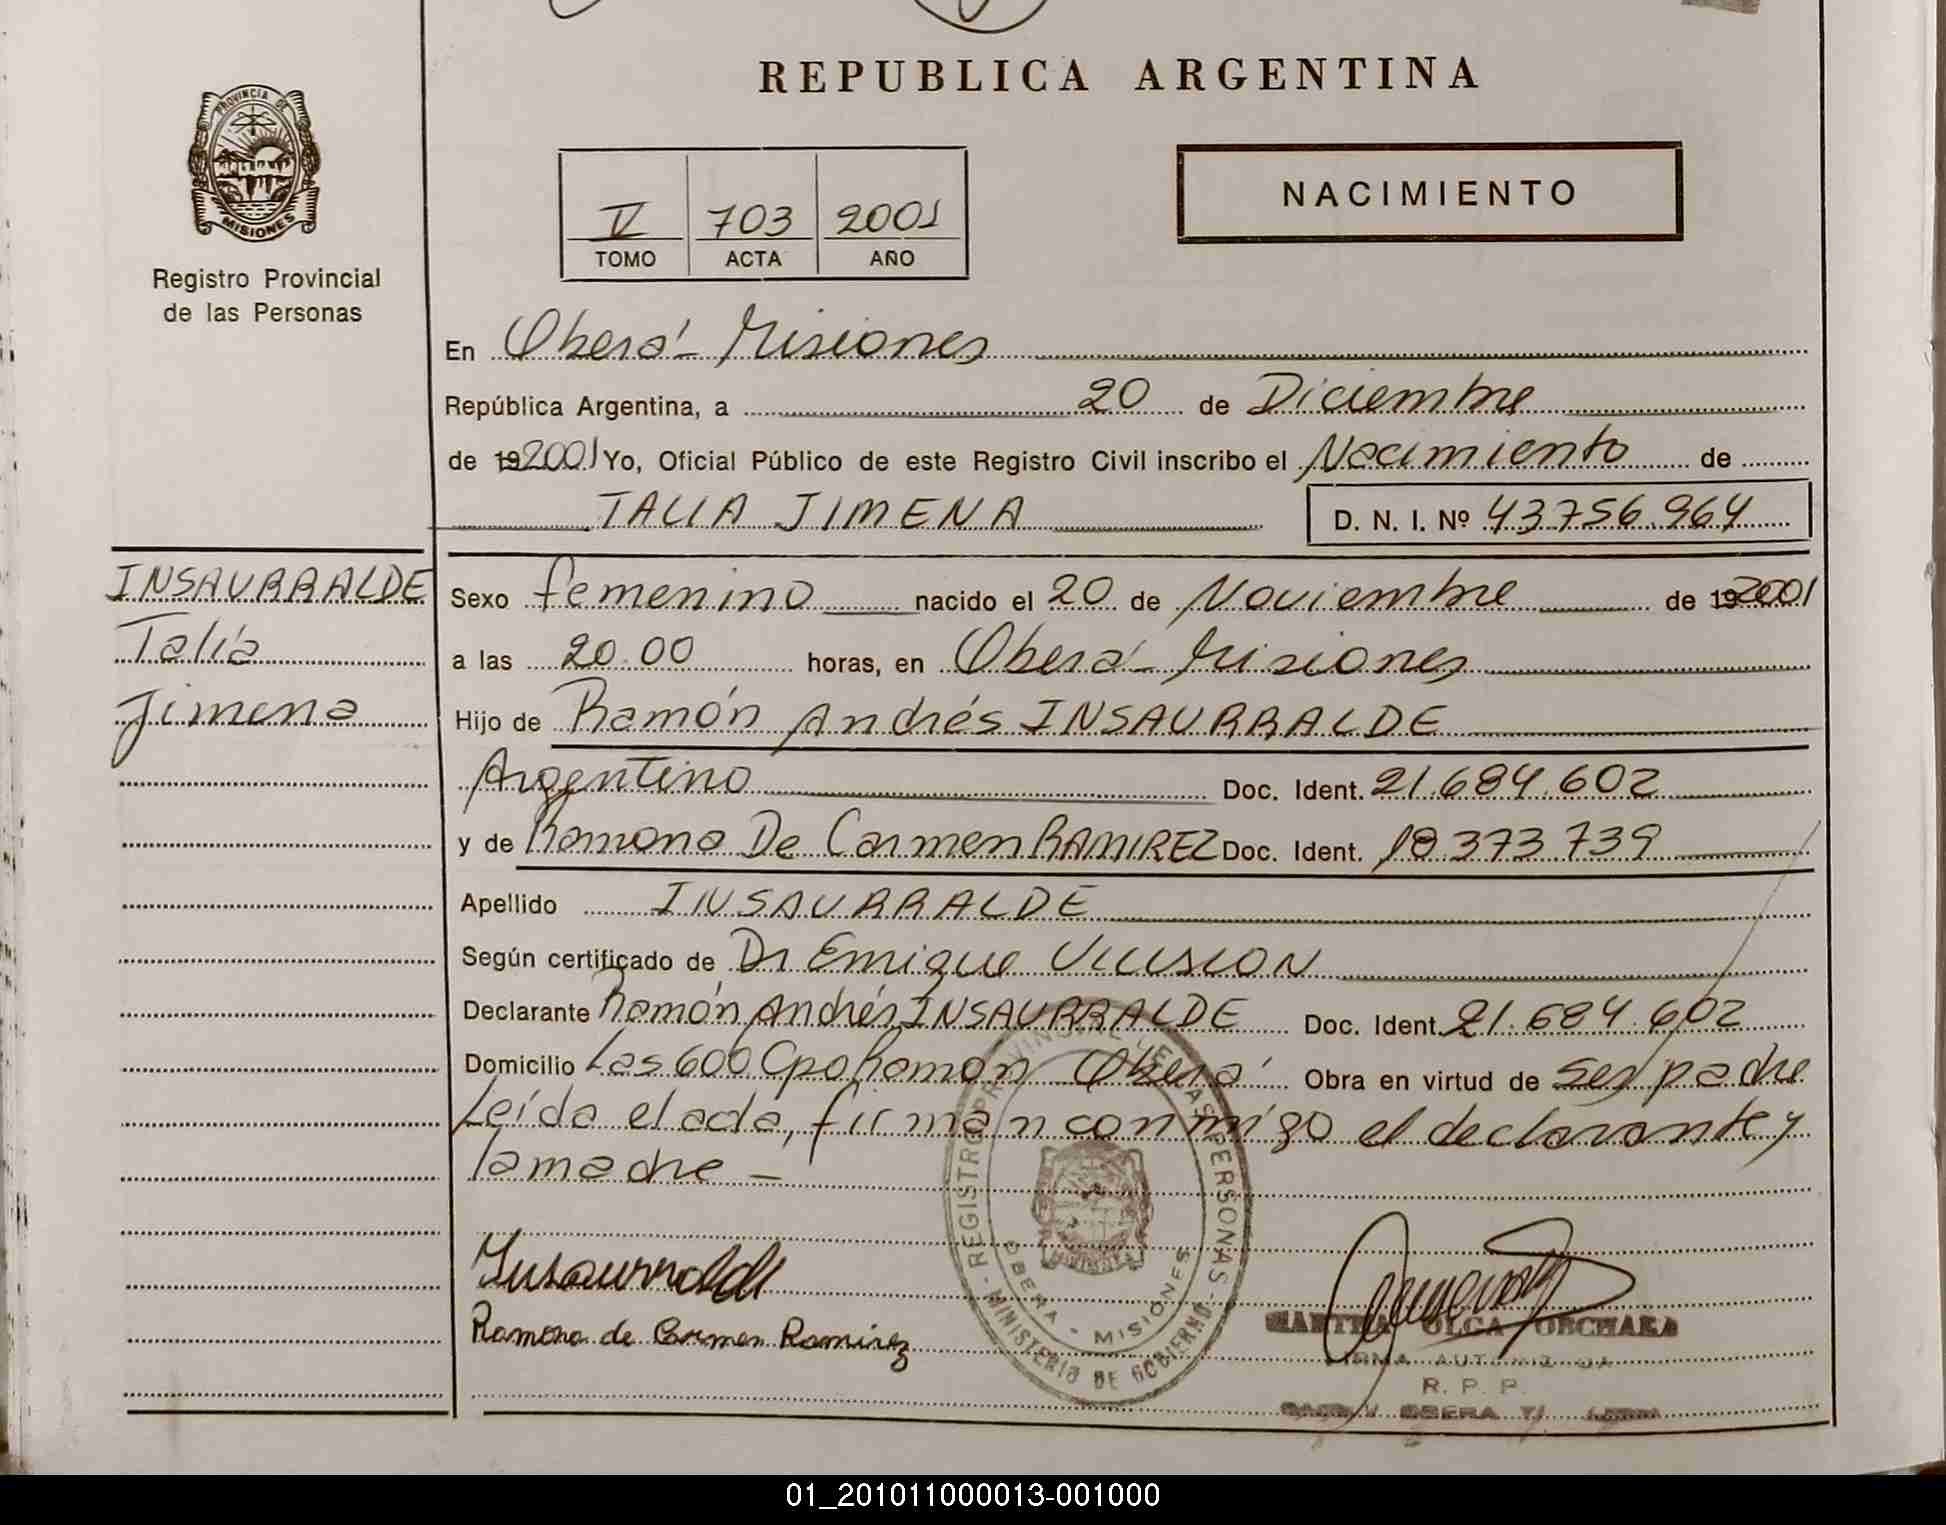 REPUBLICA ARGENTINA
PROVINCIA DE
MISIONES
Registro Provincial
de las Personas
NACIMIENTO
V 703 2001
TOMO ACTA AÑO
En Oberá - Misiones
República Argentina, a 20 de Diciembre
de 19 2001 Yo, Oficial Público de este Registro Civil inscribo el Nacimiento de
TALIA JIMENA D. N. I. Nº 43756.964
INSAURRALDE
Talía
Jimena
Sexo femenino nacido el 20 de Noviembre de 19 2001
a las 20.00 horas, en Oberá - Misiones
Hijo de Ramón Andrés INSAURRALDE
Argentino Doc. Ident. 21.684.602
y de Ramona De Carmen RAMIREZ Doc. Ident. 18.373.739
Apellido INSAURRALDE
Según certificado de Dr Enrique
Declarante Ramón Andrés INSAURRALDE Doc. Ident. 21.684.602
Domicilio Las 600 Cpo Ramon Oberá Obra en virtud de ser padre
Leída el acta, firman conmigo el declarante y
la madre -
REGISTRO PROVINCIAL DE LAS PERSONAS - MINISTERIO DE GOBIERNO -
OBERA - MISIONES
Insaurralde
Ramona de Carmen Ramirez
MARTHA OLGA
FIRMA AUTORIZADA
R. P. P.
OBERA
01_201011000013-001000